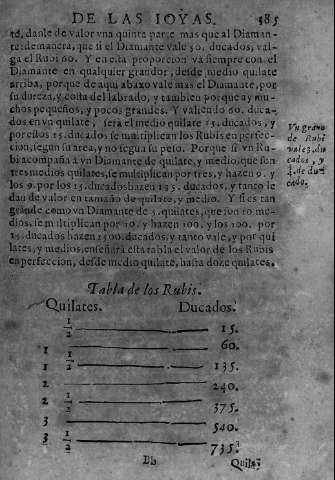 DE LAS IOYAS. 385
td, danle de valor vna quinta parte mas que al Diaman-
te: de manera, que si el Diamante vale 50. ducados, val-
ga el Rubi 60. Y en esta proporcion va siempre con el
Diamante en qualquier grandor, desde medio quilate
arriba, porque de aqui abaxo vale mas el Diamante, por
su dureza, y costa del labrado, y tambien porque ay mu-
chos pequeños, y pocos grandes. Y valiendo 60. duca-
dos en vn quilate, sera el medio quilate 15. ducados, y
por estos 15. ducados se multiplican los Rubis en perfec-
cion, segun su area, y no segun su peso. Porque si vn Ru-
bi acompaña à vn Diamante de quilate, y medio, que son
tres medios quilates, se multiplican por tres, y hazen 9. y
los 9. por los 15. ducados hazen 135. ducados, y tanto le
dan de valor en tamaño de quilate, y medio. Y si es tan
grande como vn Diamante de 5. quilates, que son 10. me-
dios, se multiplican por 10. y hazen 100. y los 100. por
15. ducados hazen 1500. ducados, y tanto vale, y por qui
lates, y medios, enseñarà esta tabla el valor de los Rubis
en perfeccion, desde medio quilate, hasta doze quilates.
Vn grano
de Rubi
vale 3. du
cados, y
¾. de du
cado.
Tabla de los Rubis.
Quilates. Ducados.
½ 15.
1 60.
1 ½ 135.
2 240.
2 ½ 375.
3 540.
3 ½ 735.
Bb Quila